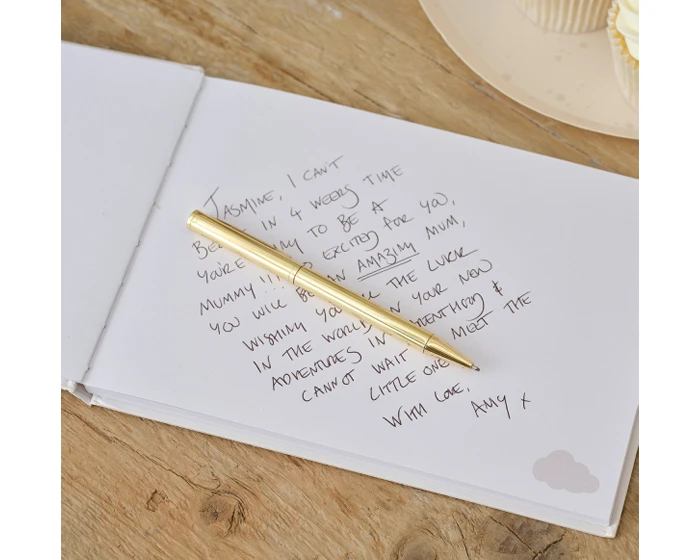 JASMINE, I CAN'T
IN 4 WEEKS TIME
YOU'RE TO BE A
MUMMY!!! EXCITED FOR YOU,
YOU WILL AN AMAZING MUM,
WISHING THE LUCK
IN THE WORLD IN YOUR NEW
ADVENTURES IN &
CANNOT WAIT MEET THE
LITTLE ONE
WITH LOVE,
AMY X